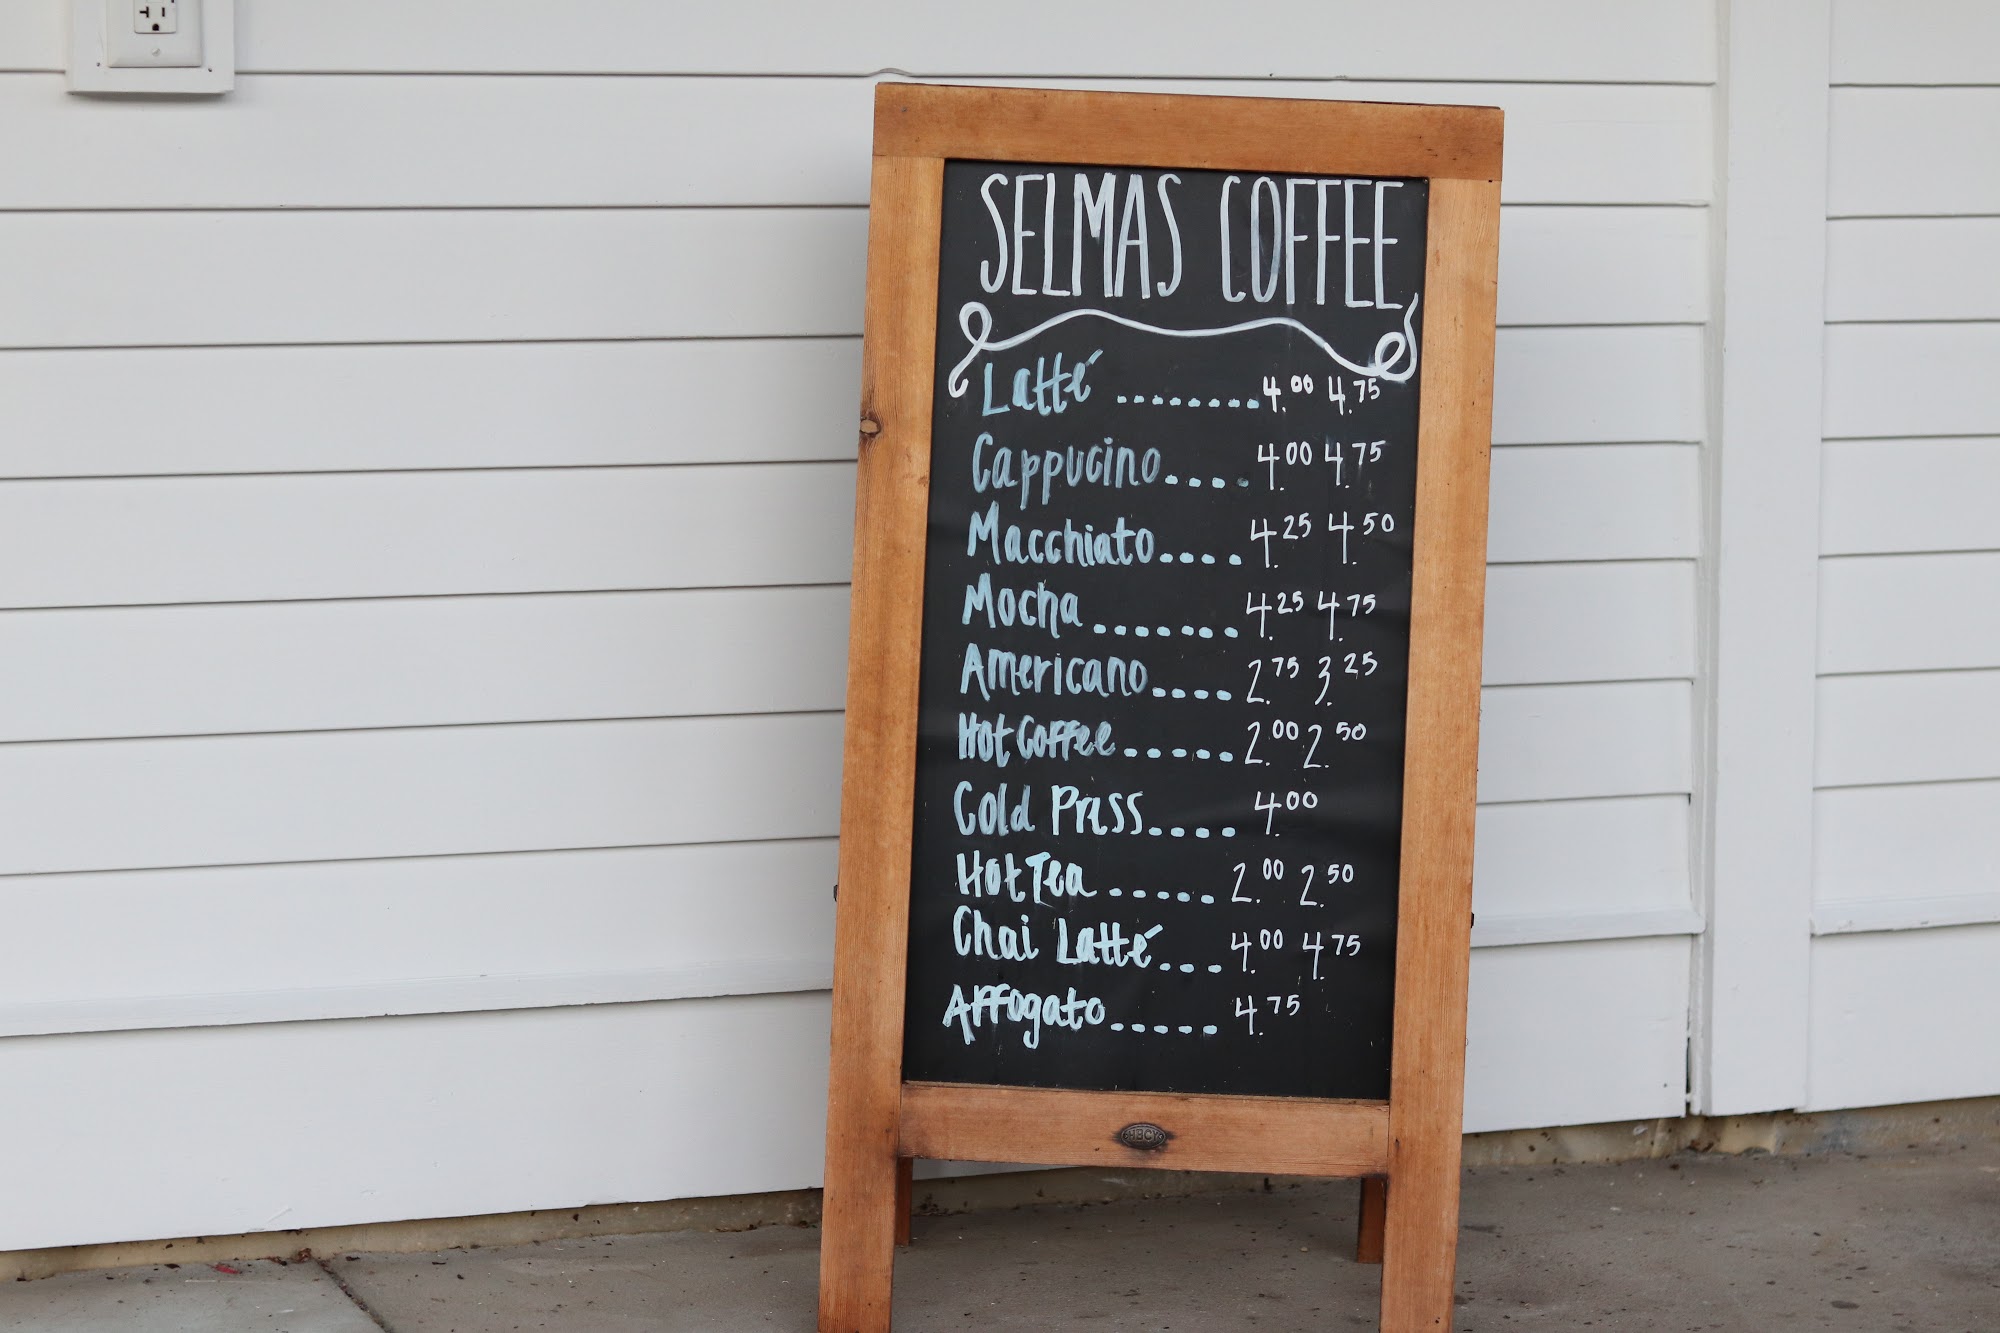 SELMAS COFFEE
Latté ........ 4.00 4.75
Cappucino.... 4.00 4.75
Macchiato.... 4.25 4.50
Mocha ....... 4.25 4.75
Americano.... 2.75 3.25
Hot Coffee..... 2.00 2.50
Cold Press.... 4.00
Hot Tea ..... 2.00 2.50
Chai Latté... 4.00 4.75
Affogato..... 4.75